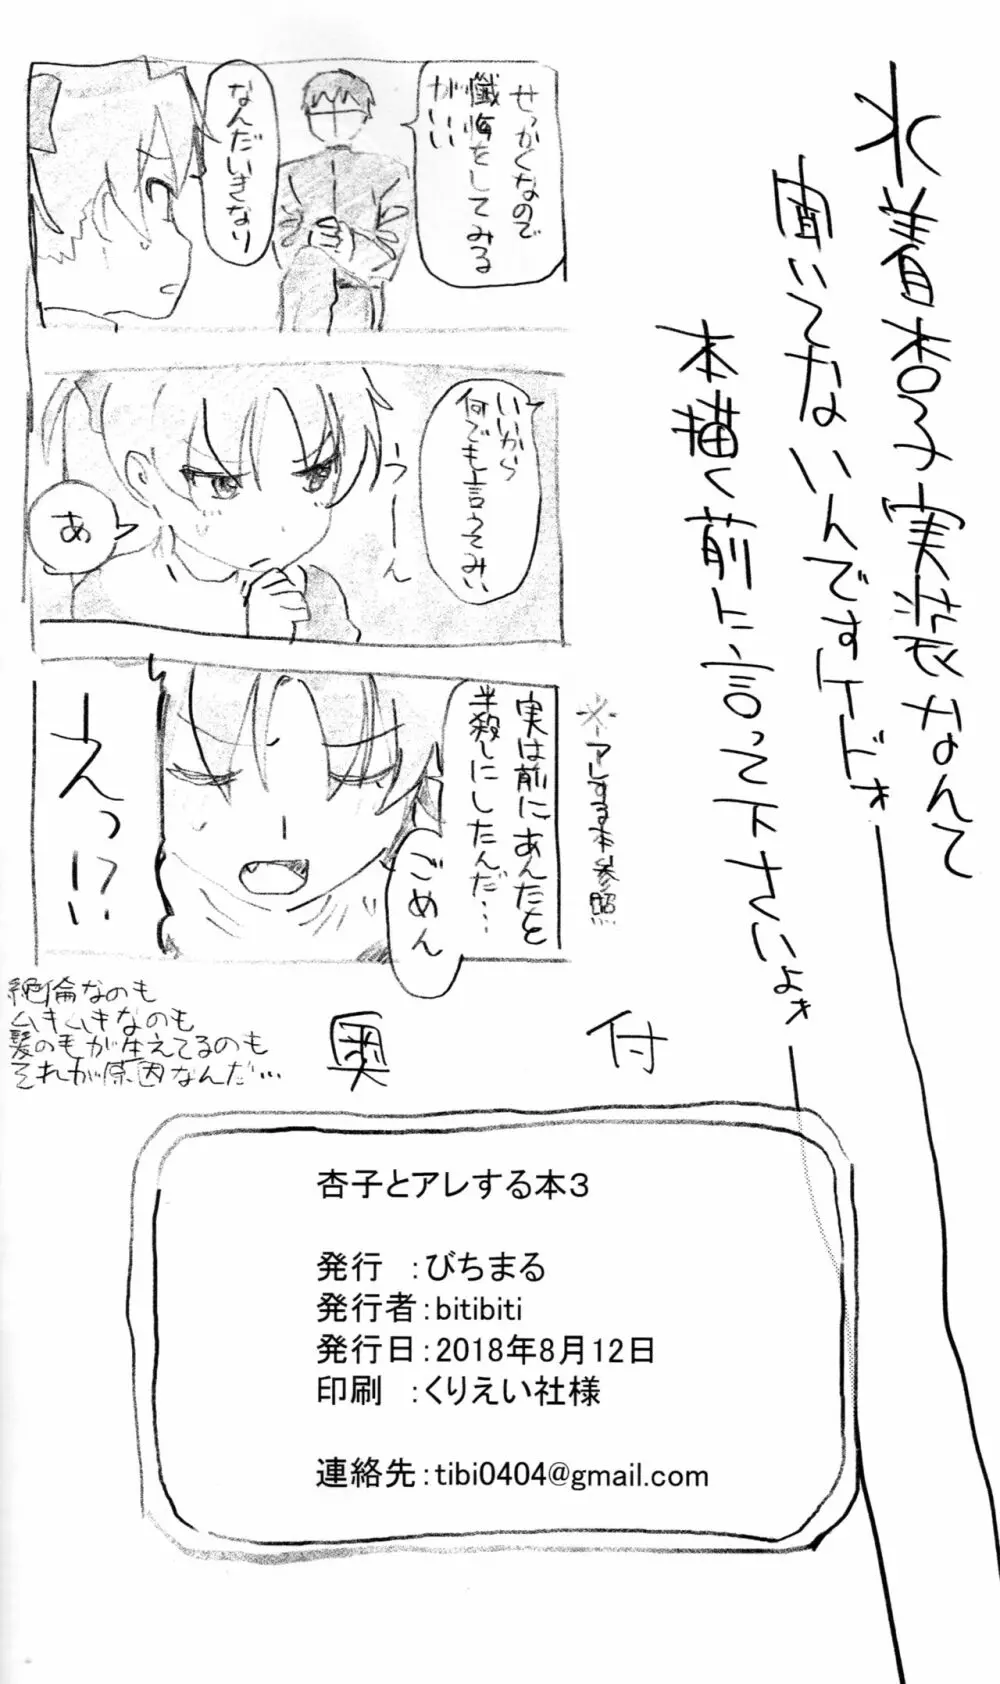 水着杏子実装なんて
聞いてないんですけドォ
本描く前に言って下さいよォ
せっかくなので
懺悔をしてみる
がいい
なんだいきなり
いいから
何でも言うてみい
うーーん
あ
※アレする本参照
実は前にあんたを
半殺しにしたんだ…
ごめん
えっ!?
絶倫なのも
ムキムキなのも
髪の毛が生えてるのも
それが原因なんだ…
奥付
杏子とアレする本3
発行 :びちまる
発行者:bitibiti
発行日:2018年8月12日
印刷 :くりえい社様
連絡先:tibi0404@gmail.com